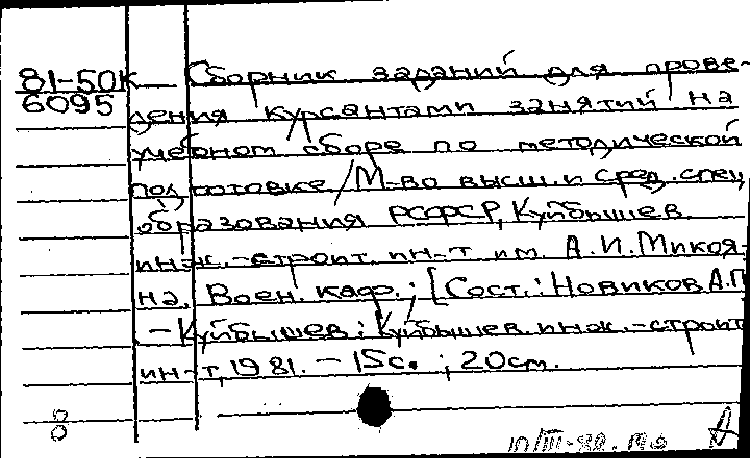 81-50К Сборник заданий для прове-
6095 дения курсантами занятий на
учебном сборе по методической
подготовке / М-во высш. и сред. спец.
образования РСФСР, Куйбышев.
инж.-строит. ин-т им. А.И. Микоя-
на, Воен. каф.; [Сост.: Новиков А.П.
- Куйбышев: Куйбышев. инж.-строит.
ин-т, 1981. - 15с. ; 20см.